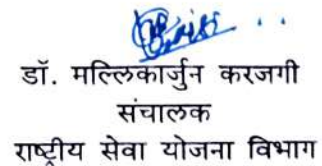 डॉ. मल्लिकार्जुन करजगी
संचालक
राष्ट्रीय सेवा योजना विभाग